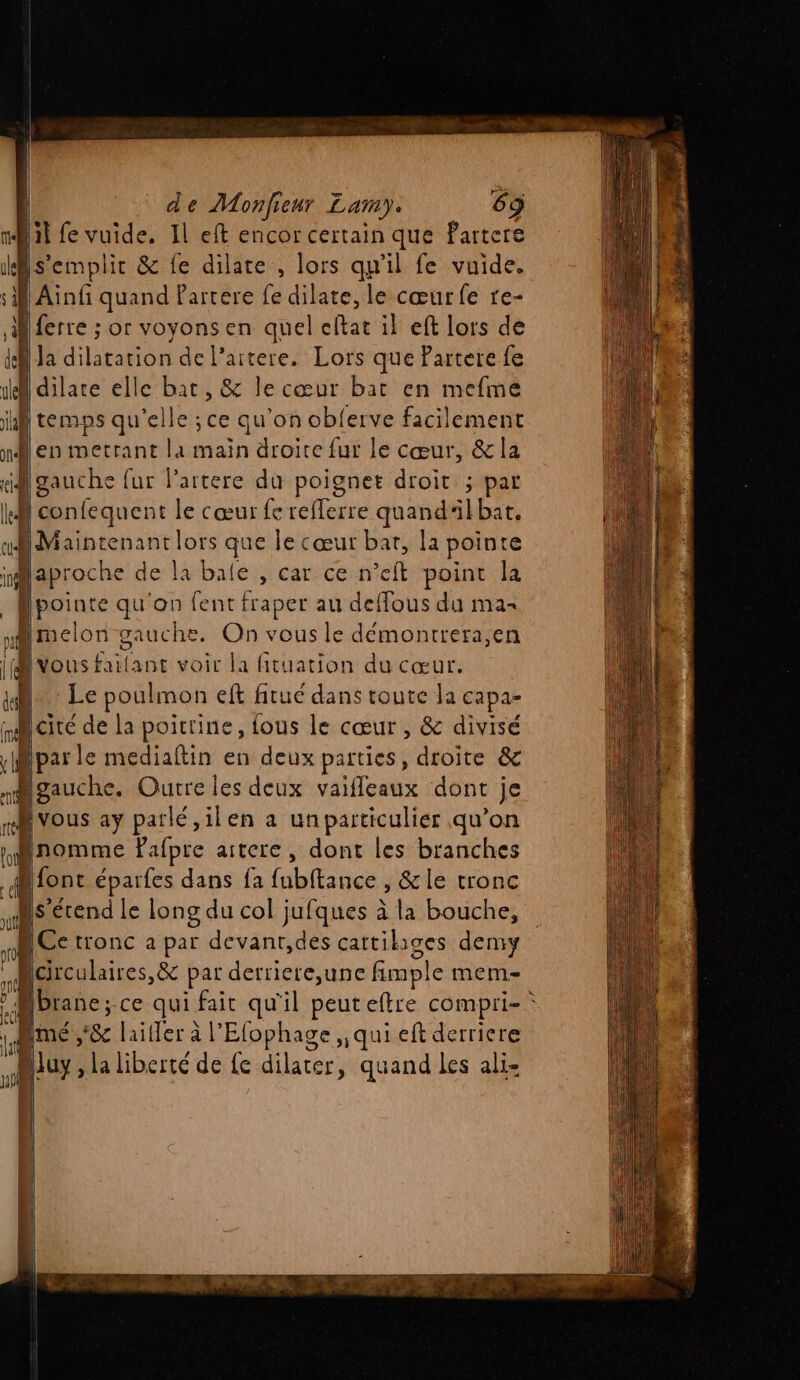 de Monſieur Lamy. 69
il ſe vuide. Il eſt encor certain que l'artere
s'emplit & ſe dilate , lors qu'il ſe vuide.
Ainſi quand l'artere ſe dilate, le cœur ſe re-
ſerre ; or voyons en quel eſtat il eſt lors de
la dilatation de l'artere. Lors que l'artere ſe
dilate elle bat , & le cœur bat en meſme
temps qu'elle ; ce qu'on obſerve facilement
en mettant la main droite ſur le cœur, & la
gauche ſur l'artere du poignet droit ; par
conſequent le cœur ſe reſſerre quand il bat.
Maintenant lors que le cœur bat, la pointe
aproche de la baſe , car ce n'eſt point la
pointe qu'on ſent fraper au deſſous du ma-
melon gauche. On vous le démontrera,en
vous faiſant voir la ſituation du cœur.
Le poulmon eſt ſitué dans toute la capa-
cité de la poitrine, ſous le cœur , & divisé
par le mediaſtin en deux parties, droite &
gauche. Outre les deux vaiſſeaux dont je
vous ay parlé,il en a un particulier qu'on
nomme l'aſpre artere , dont les branches
ſont éparſes dans ſa ſubſtance , & le tronc
s'étend le long du col juſques à la bouche,
Ce tronc a par devant,des cartilages demy
circulaires,& par derriere,une ſimple mem-
brane ; ce qui fait qu'il peut eſtre compri-
mé ,& laiſſer à l'Eſophage , qui eſt derriere
luy , la liberté de ſe dilater, quand les ali-